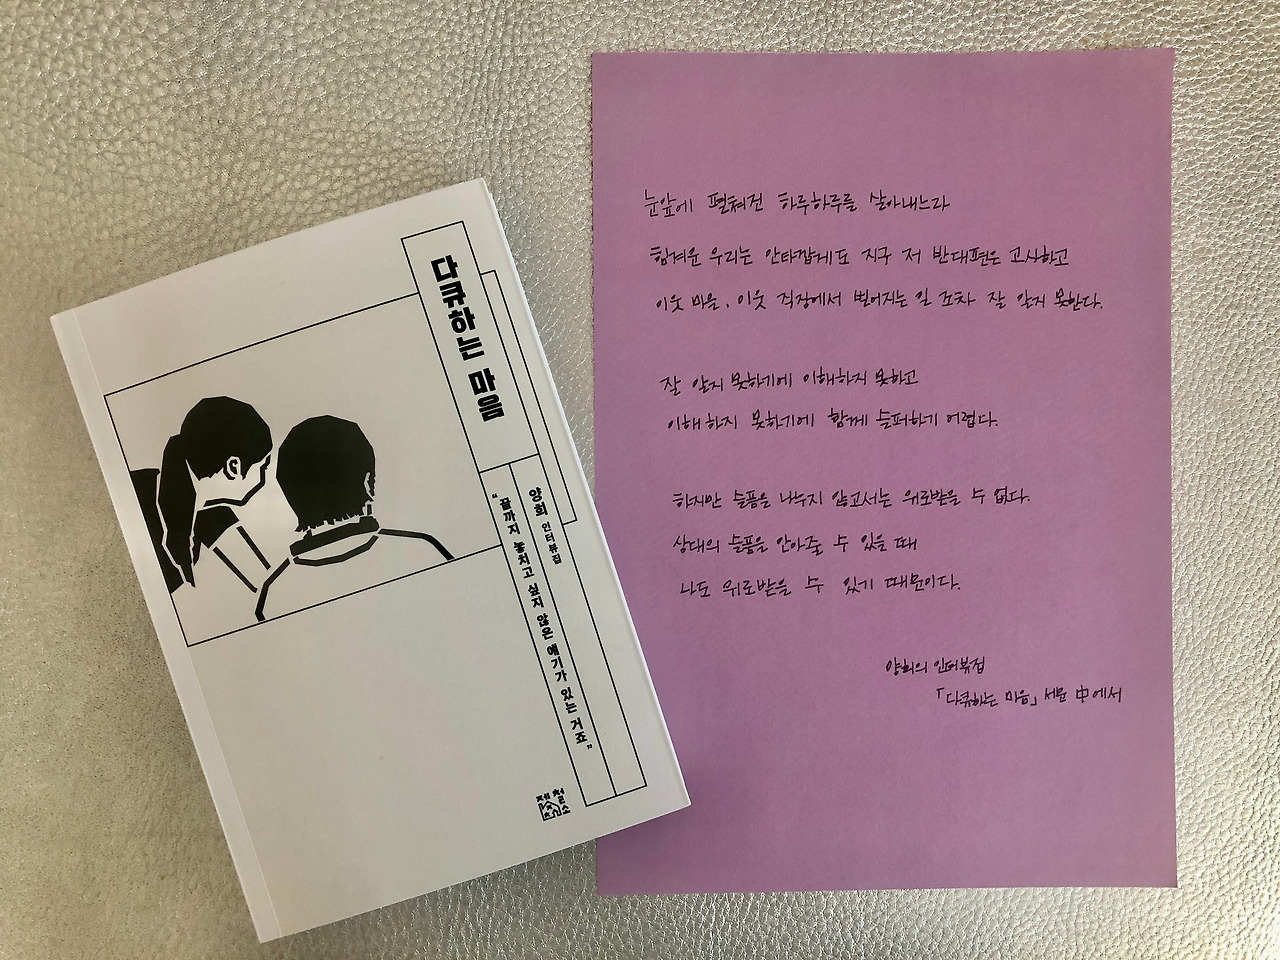 다큐하는 마음
양희 인터뷰집
“끝까지 놓치고 싶지 않은 얘기가 있는 거죠”
제철소
눈앞에 펼쳐진 하루하루를 살아내느라
힘겨운 우리는 안타깝게도 지구 저 반대편은 고사하고
이웃 마을, 이웃 직장에서 벌어지는 일 조차 잘 알지 못한다.
잘 알지 못하기에 이해하지 못하고
이해하지 못하기에 함께 슬퍼하기 어렵다.
하지만 슬픔을 나누지 않고서는 위로받을 수 없다.
상대의 슬픔을 안아줄 수 있을 때
나도 위로받을 수 있기 때문이다.
양희의 인터뷰집
「다큐하는 마음」 서문 中에서